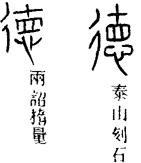 德
泰山刻石
德
兩詔楕量